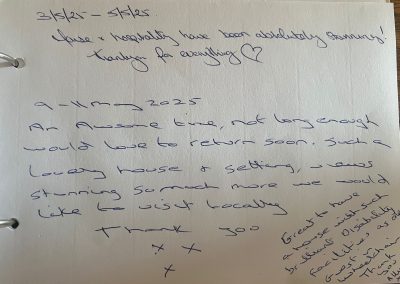 3/5/25 - 5/5/25.
House & hospitality have been absolutely stunning!
Thankyou for everything ♡
9-11 May 2025
An Awsome time, not long enough
would love to return soon. Such a
lovely house & setting, views
stunning so much more we would
like to visit locally
Thank you
x x
x
Great to have
a house with such
brilliant Disability
facilities as
Guest in
wheelchair
Thank
you